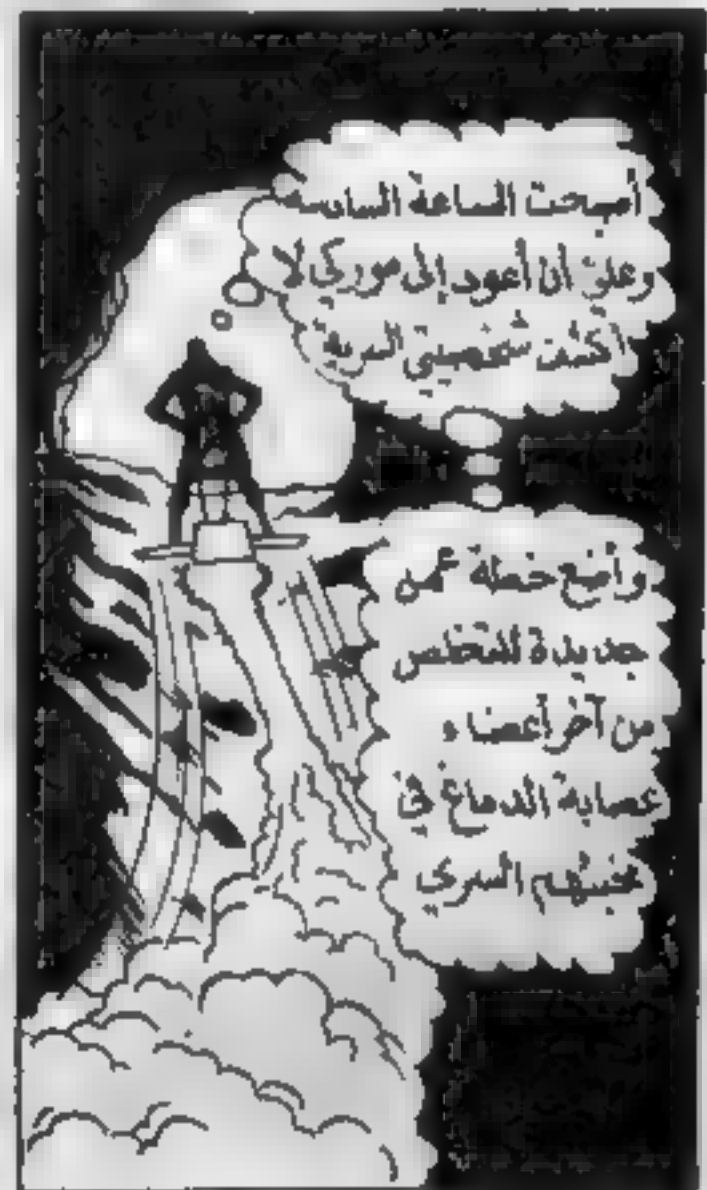 أصبحت الساعة السادسة
وعلي أن أعود إلى موركي لا
أكشف شخصيتي السرية
وأضع خطة عمل
جديدة للتخلص
من آخر أعضاء
عصابة الدماغ في
مخبئهم السري